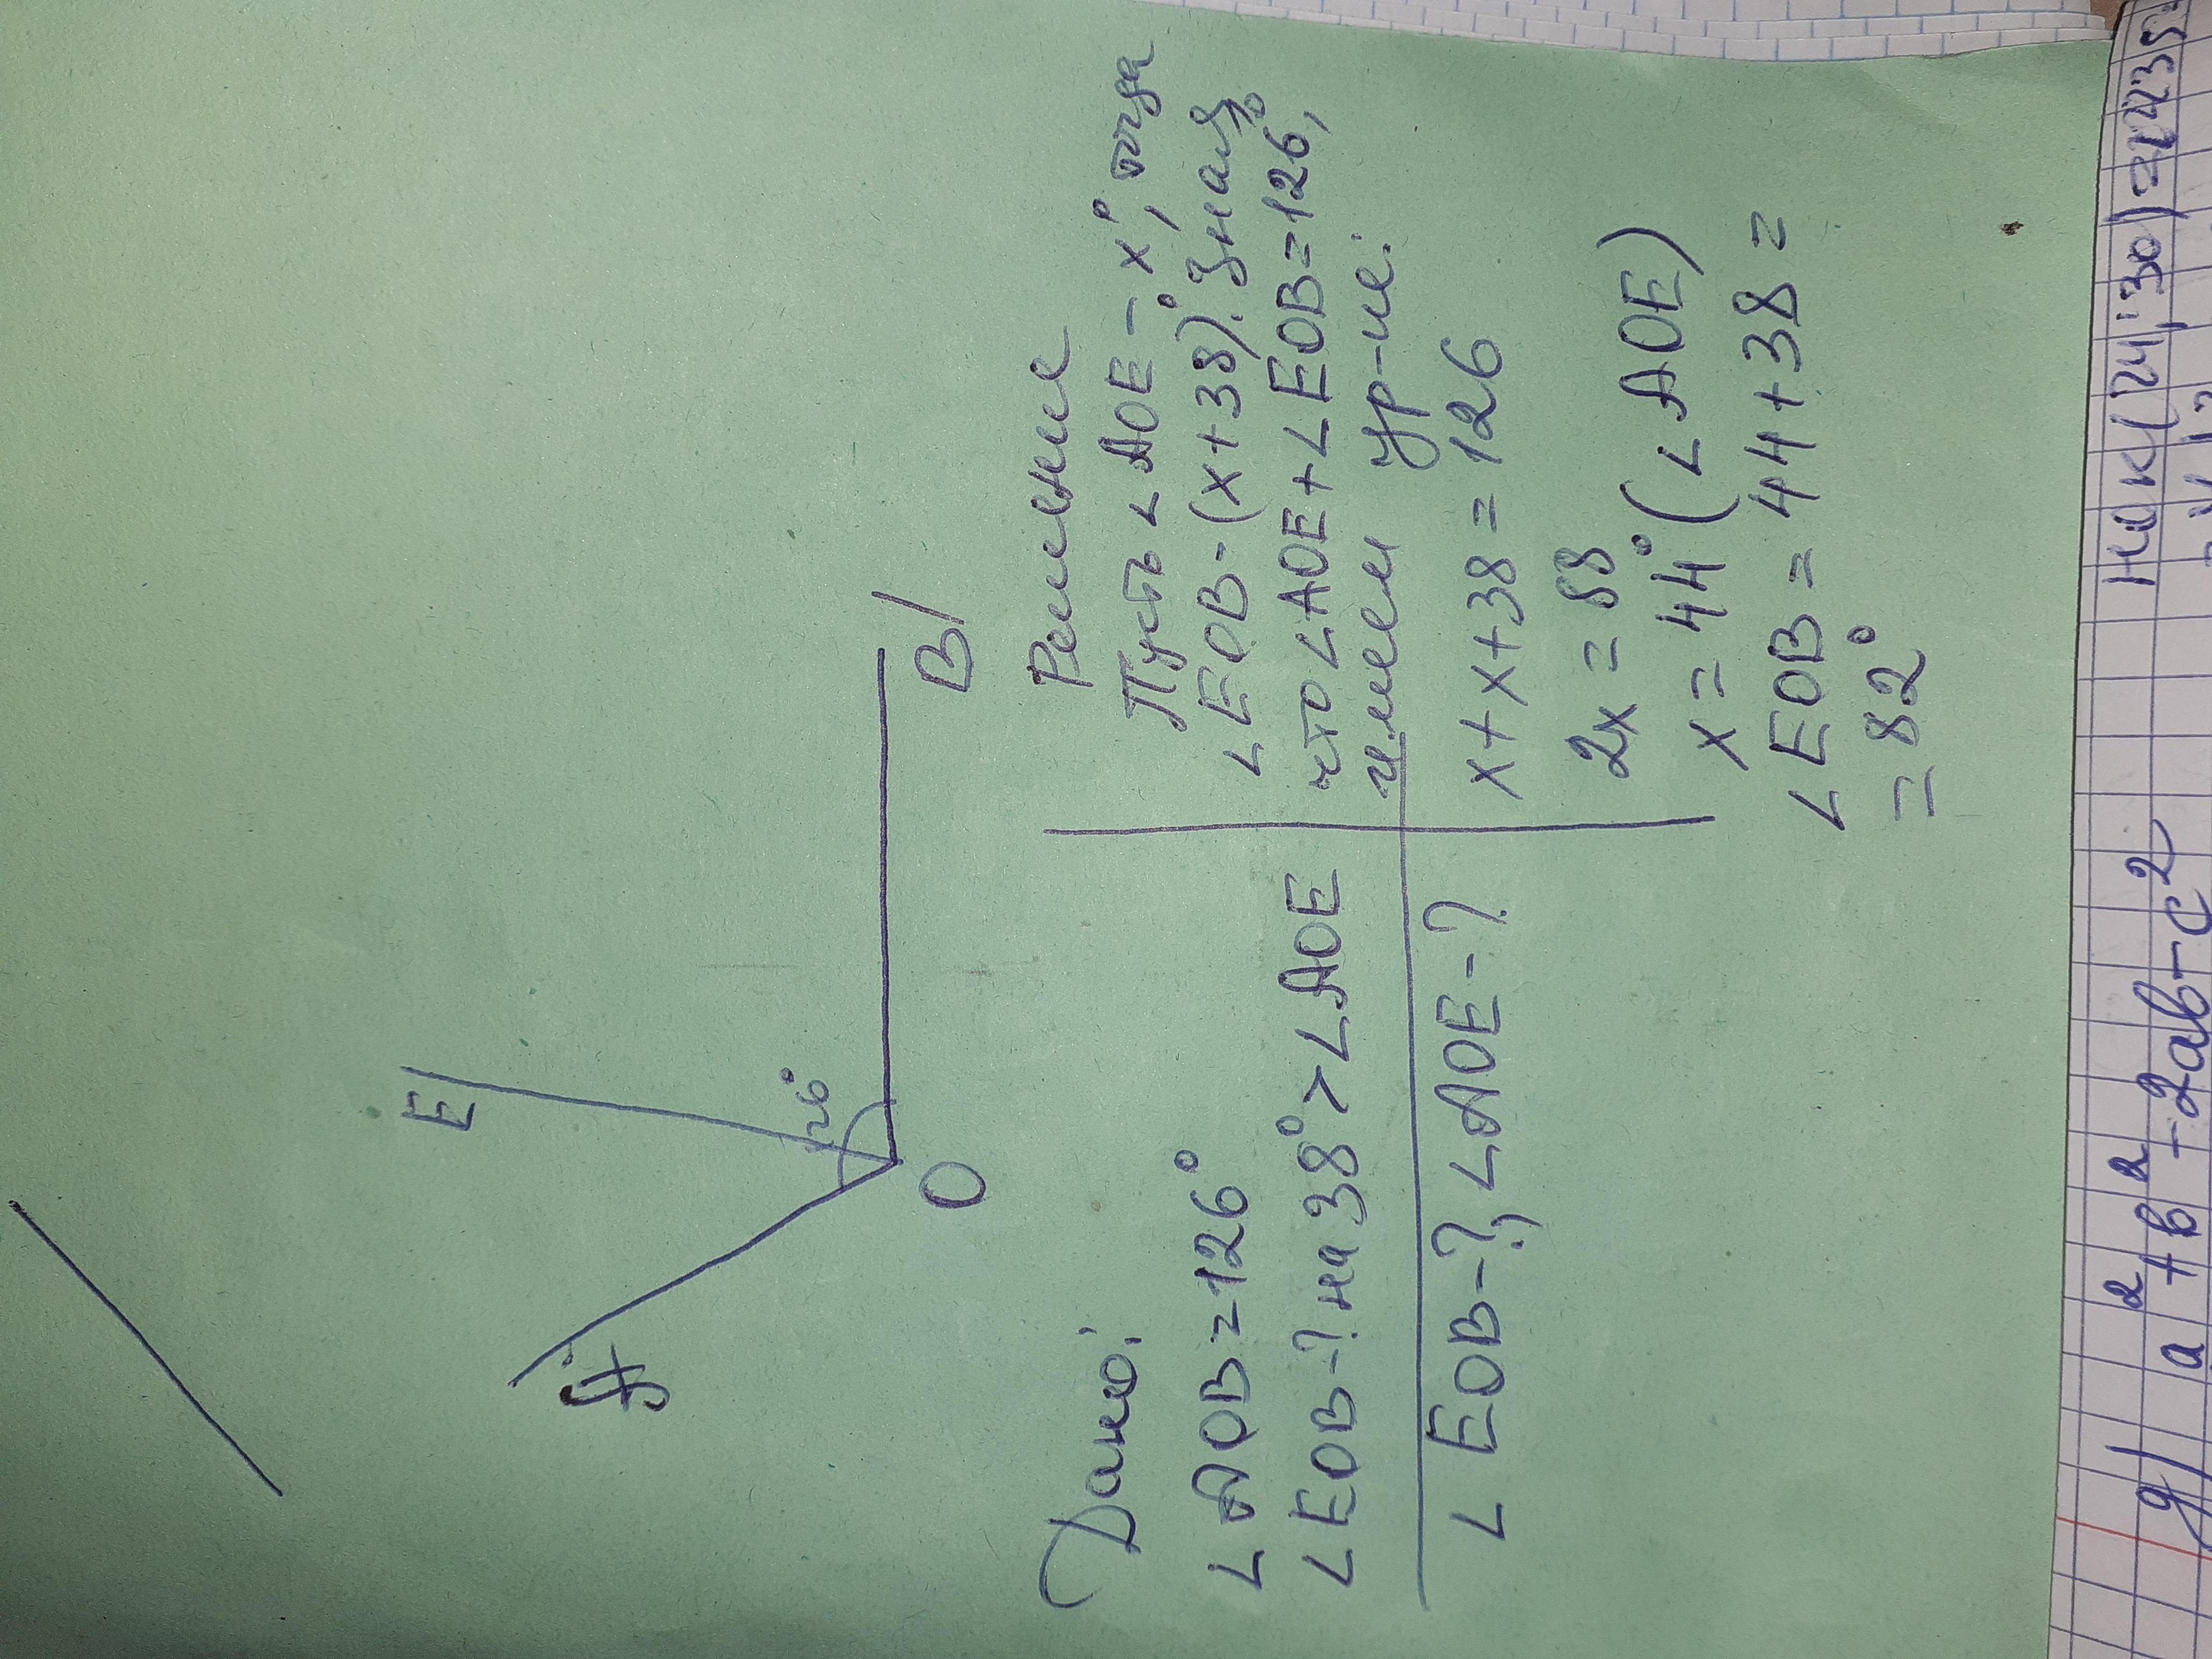 E
A
126°
O
B
Дано:
∠AOB=126°
∠EOB-? на 38°>∠AOE
∠EOB-?, ∠AOE-?
Решение
Пусть ∠AOE-x°, тогда
∠EOB-(x+38)°. Зная,
что ∠AOE+∠EOB=126°,
имеем ур-ие:
x+x+38=126
2x=88
x=44°(∠AOE)
∠EOB=44+38=
=82°
g) a²+b²-2ab-c²
НОК(24;30)=